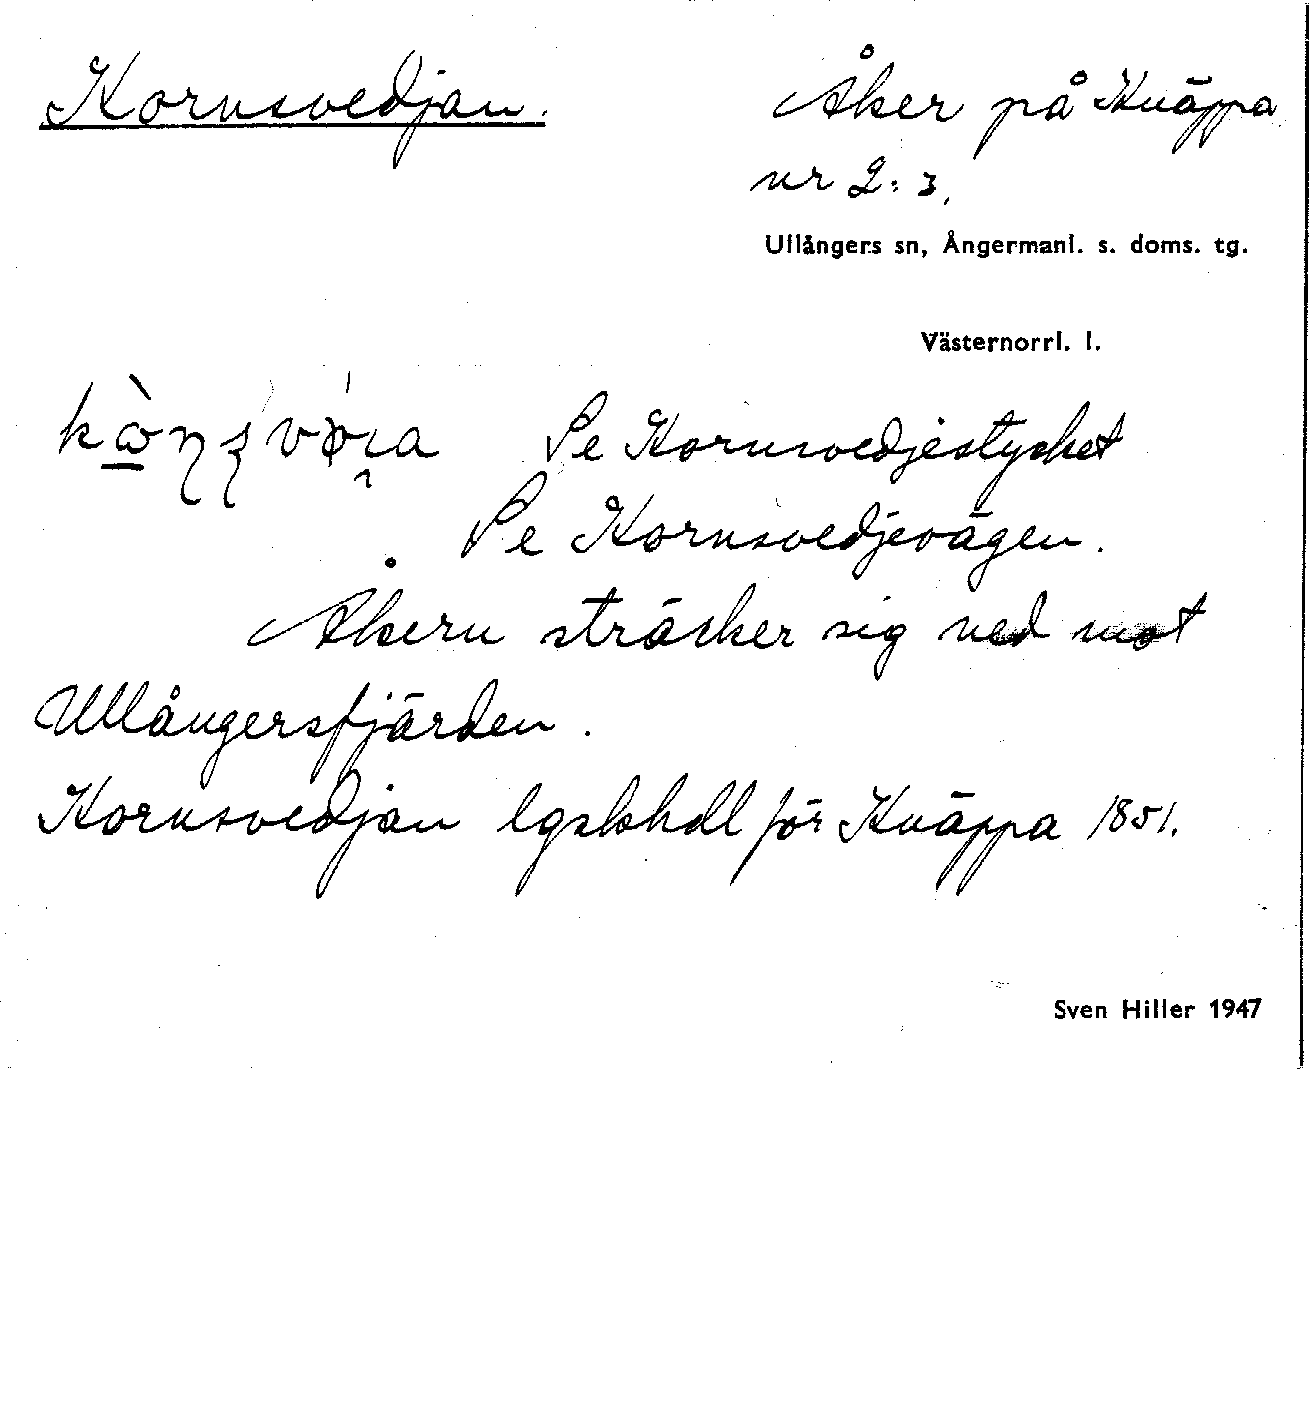 Kornsvedjan.
Åker på Knäppa
nr 2:3.
Ullångers sn, Ångermanl. s. doms. tg.
Västernorrl. l.
Se Kornsvedjestycket
Se Kornsvedjevägen.
Åkern sträcker sig ned mot
Ullångersfjärden.
Kornsvedjan lgskhdl för Knäppa 1851.
Sven Hiller 1947